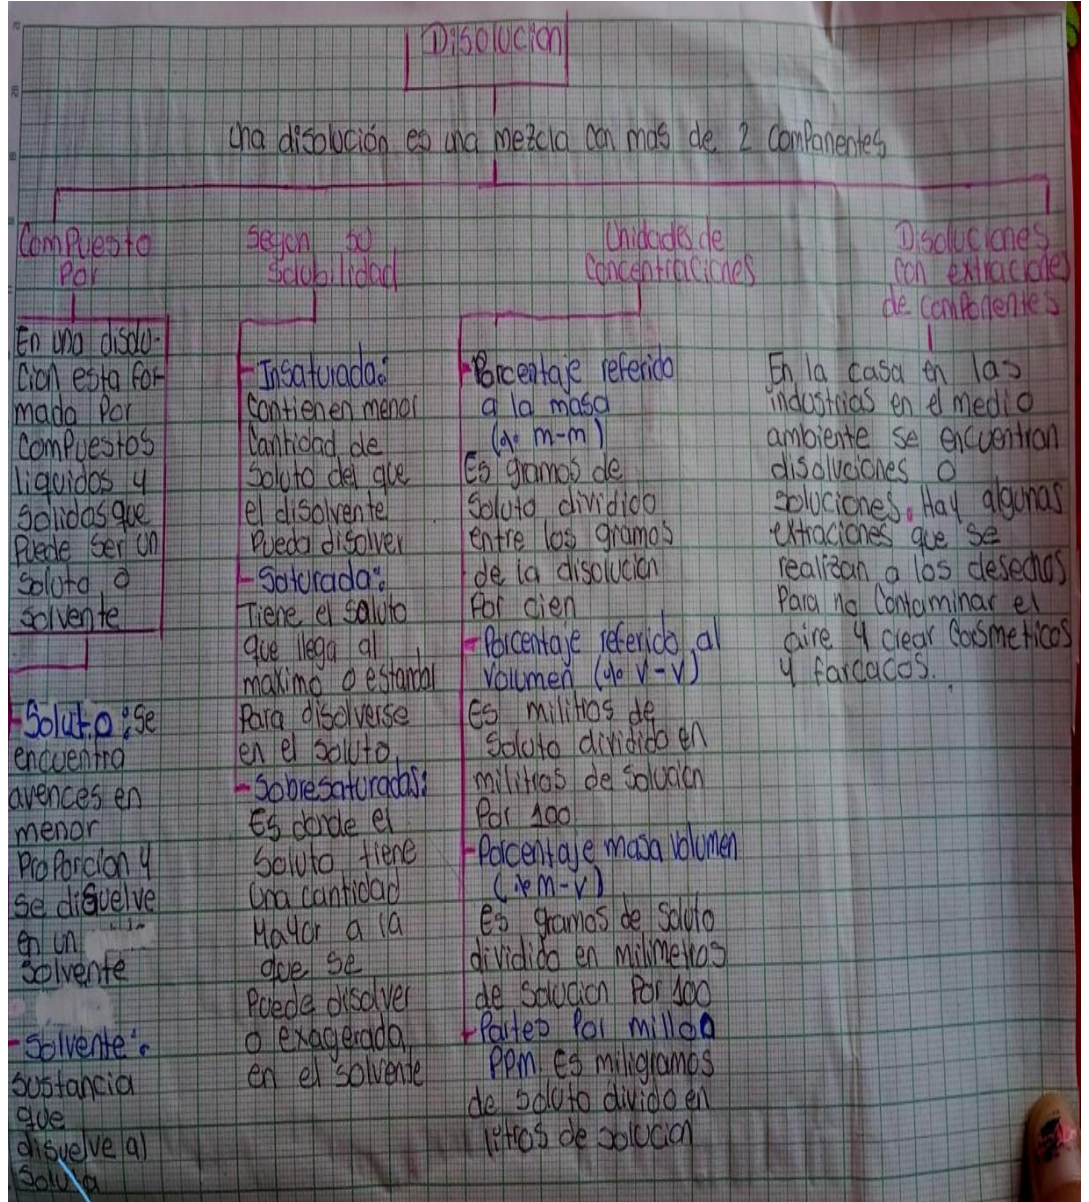 Disolución
Una disolución es una mezcla con mas de 2 componentes
Compuesto
Por
En una disolu-
cion esta for-
mada Por
compuestos
liquidos y
solidos que
Puede ser un
soluto o
solvente
- Soluto: Se
encuentra
avences en
menor
Proporcion y
se disuelve
en un
solvente
- Solvente:
sustancia
que
disuelve al
Soluto
Segun su
Solubilidad
- Insaturada:
Contienen menor
Cantidad de
Soluto del que
el disolvente
Pueda disolver
- Saturada:
Tiene el soluto
que llega al
maximo o estandar
Para disolverse
en el soluto
- Sobresaturadas:
Es donde el
Soluto tiene
una cantidad
Mayor a la
que se
Puede disolver
o exagerada
en el solvente
Unidades de
Concentraciones
- Porcentaje referido
a la masa
(% m-m)
Es gramos de
Soluto dividido
entre los gramos
de la disolucion
Por cien
- Porcentaje referido al
volumen (% v-v)
Es militros de
Soluto dividido en
militros de Solucion
Por 100
- Porcentaje masa volumen
(% m-v)
es gramos de soluto
dividido en milimetros
de solucion Por 100
- Partes Por millon
PPm Es miligramos
de soluto divido en
litros de solucion
Disoluciones
con extraciones
de componentes
En la casa en las
industrias en el medio
ambiente se encuentran
disoluciones o
soluciones. Hay algunas
extraciones que se
realizan a los desechos
Para no Contaminar el
aire y crear Cosmeticos
y farcacos.